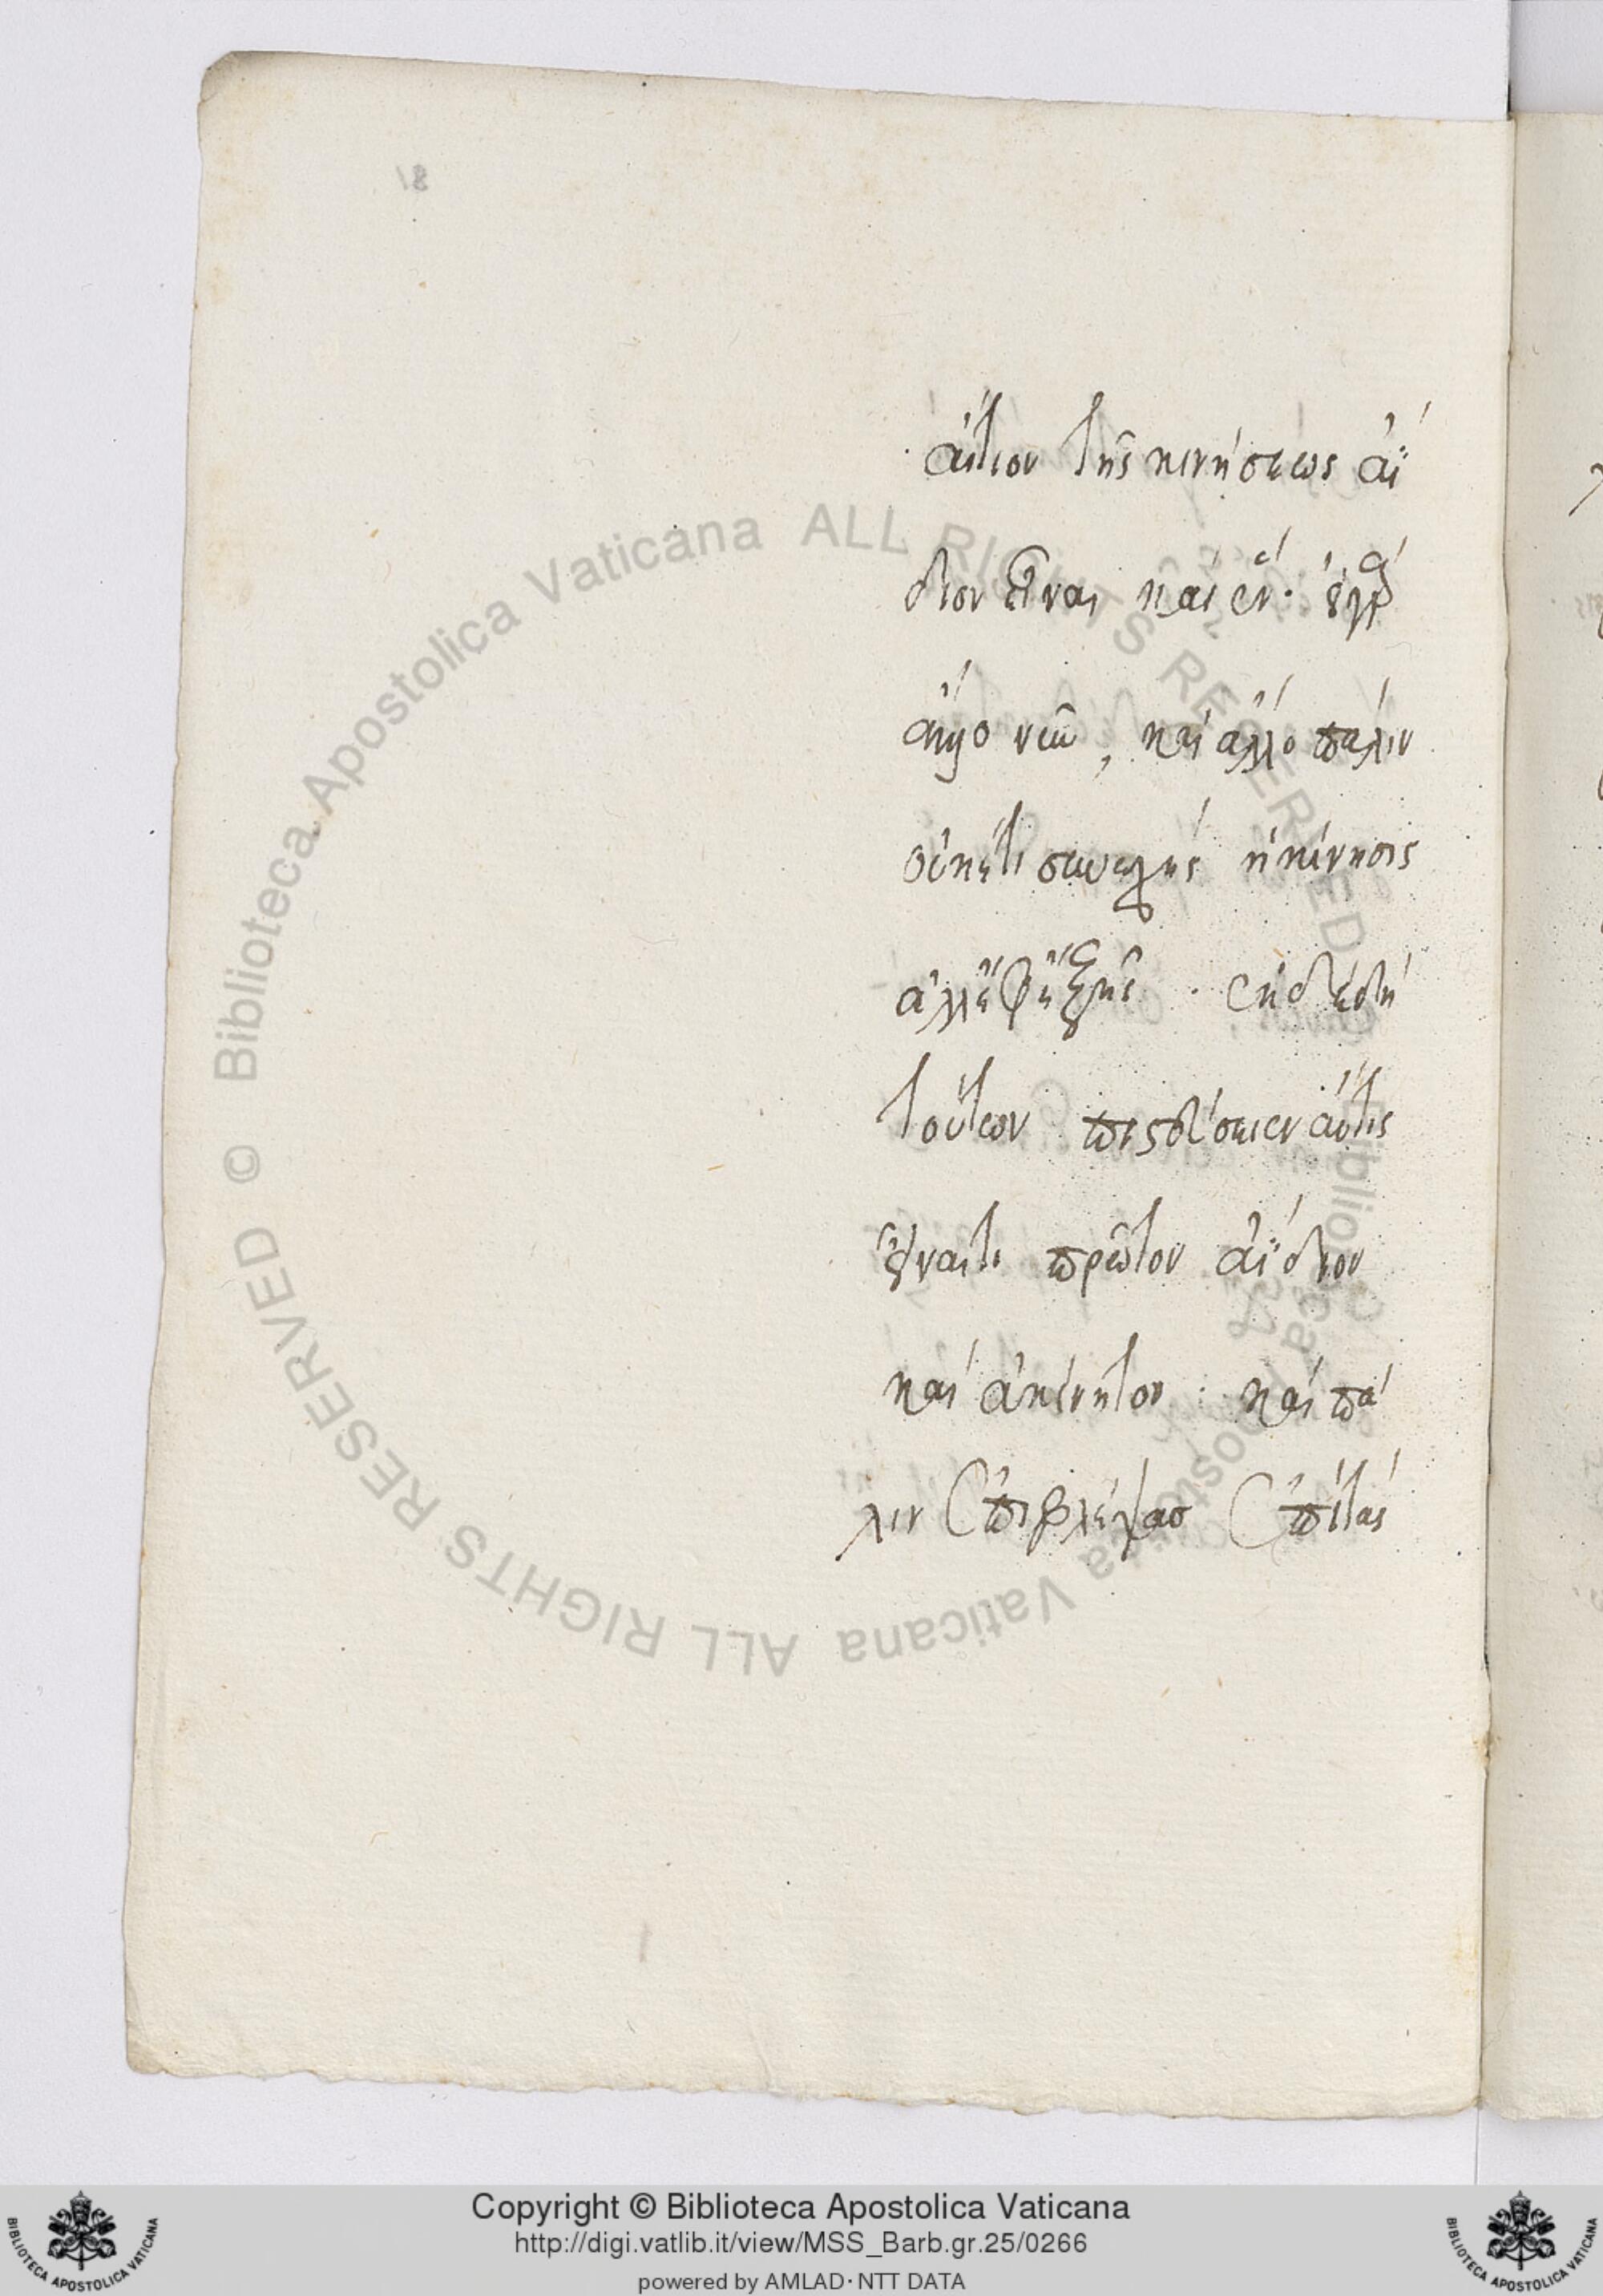 αἴτιον τῆς κινήσεως ἀΐ
διον εἶναι καὶ ἕν· εἰ γὰρ
ἄλλο νῦν, καὶ ἄλλο πάλιν
οὐκέτι συνεχὴς ἡ κίνησις
ἀλλ' ἐφεξῆς. ἐκ δὲ δὴ
τούτων πιστεύσειεν ἄν τις
εἶναι τι πρῶτον ἀΐδιον
καὶ ἀκίνητον· καὶ πά
λιν ἐπιβλέψας ἐπὶ τὰς
Copyright © Biblioteca Apostolica Vaticana
http://digi.vatlib.it/view/MSS_Barb.gr.25/0266
powered by AMLAD·NTT DATA
© Biblioteca Apostolica Vaticana ALL RIGHTS RESERVED
Biblioteca Apostolica Vaticana ALL RIGHTS RESERVED
BIBLIOTECA APOSTOLICA VATICANA
BIBLIOTECA APOSTOLICA VATICANA